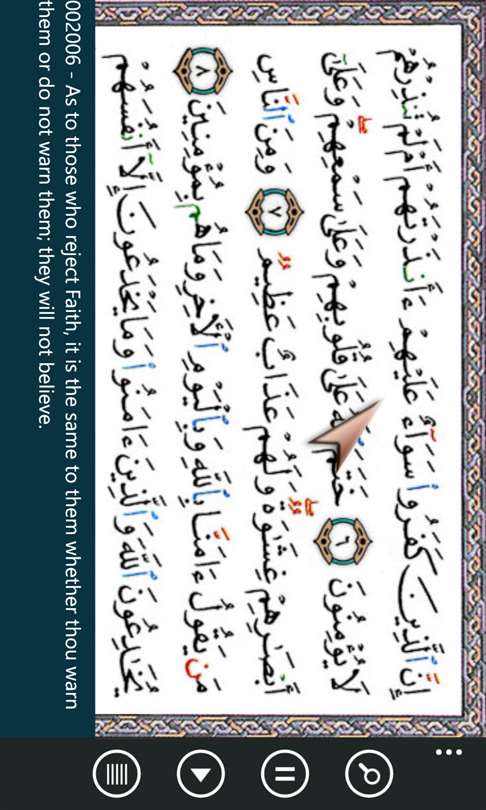 إِنَّ ٱلَّذِينَ كَفَرُوا۟ سَوَآءٌ عَلَيْهِمْ ءَأَنذَرْتَهُمْ أَمْ لَمْ تُنذِرْهُمْ
لَا يُؤْمِنُونَ ٦ خَتَمَ ٱللَّهُ عَلَىٰ قُلُوبِهِمْ وَعَلَىٰ سَمْعِهِمْ ۖ وَعَلَىٰٓ
أَبْصَٰرِهِمْ غِشَٰوَةٌ ۖ وَلَهُمْ عَذَابٌ عَظِيمٌ ٧ وَمِنَ ٱلنَّاسِ
مَن يَقُولُ ءَامَنَّا بِٱللَّهِ وَبِٱلْيَوْمِ ٱلْءَاخِرِ وَمَا هُم بِمُؤْمِنِينَ ٨
يُخَٰدِعُونَ ٱللَّهَ وَٱلَّذِينَ ءَامَنُوا۟ وَمَا يَخْدَعُونَ إِلَّآ أَنفُسَهُمْ
002006 - As to those who reject Faith, it is the same to them whether thou warn
them or do not warn them; they will not believe.